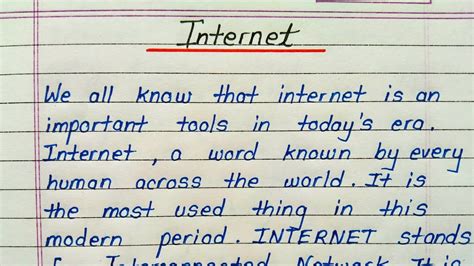 Internet
We all know that internet is an
important tools in today's era.
Internet, a word known by every
human across the world. It is
the most used thing in this
modern period. INTERNET stands
for Interconnected Network. It is